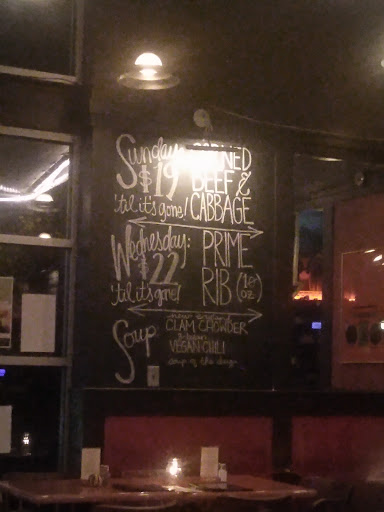 Sunday: CORNED
$19 BEEF &
'til it's gone! CABBAGE
Wednesday: PRIME
$22 RIB (10 oz)
'til it's gone!
Soup
new england
CLAM CHOWDER
VEGAN CHILI
soup of the day